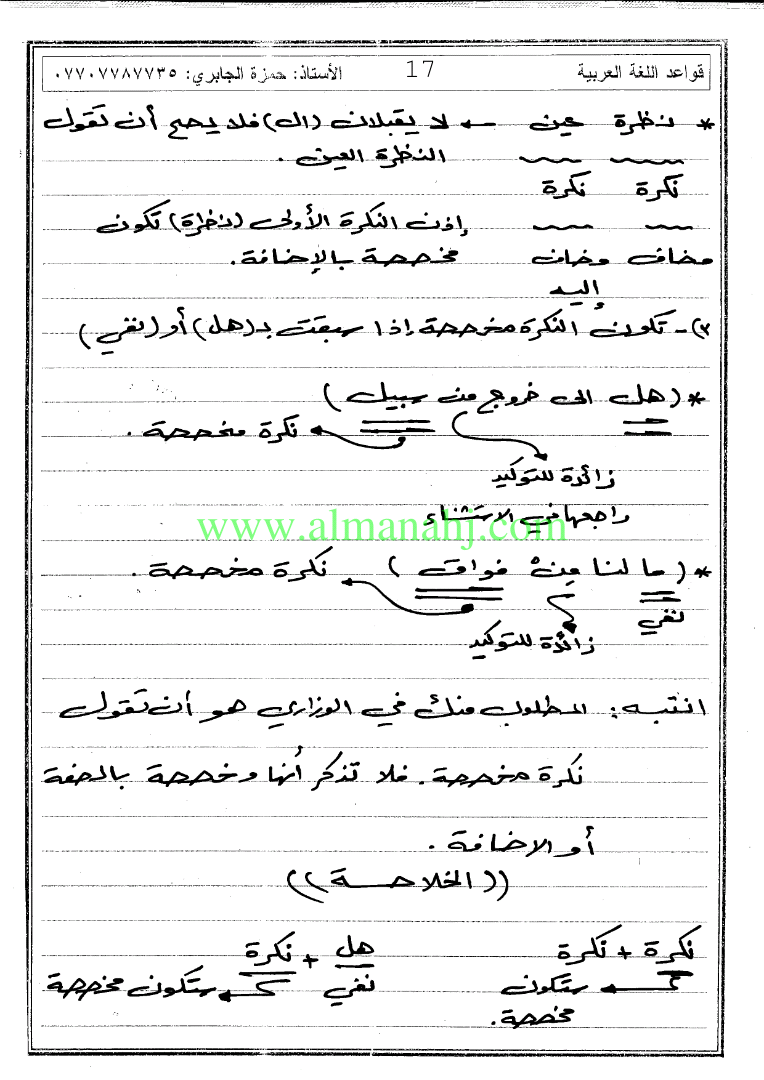 قواعد اللغة العربية 17 الأستاذ: حمزة الجابري: ٠٧٧٠٧٧٨٧٧٣٥
* نظرة عين ← لا يقبلان (ال) فلا يصح أن تقول
النظرة العين .
نكرة نكرة
إذن النكرة الأولى (نظرة) تكون
مضاف مضاف مخصصة بالإضافة.
إليه
٢) - تكون النكرة مخصصة إذا سبقت بـ (هل) أو (نفي)
* (هل الى خروج من سبيل)
نكرة مخصصة .
زائدة للتوكيد
راجعها في الاستثناء
www.almanahj.com
* (ما لنا مِنْ فواق) نكرة مخصصة .
نفي
زائدة للتوكيد
انتبه: المطلوب منك في الوزاري هو أن تقول
نكرة مخصصة. فلا تذكر أنها مخصصة بالصفة
أو الاضافة .
((الخلاصـــة))
نكرة + نكرة هل + نكرة
ستكون نفي ستكون مخصصة
مخصصة.